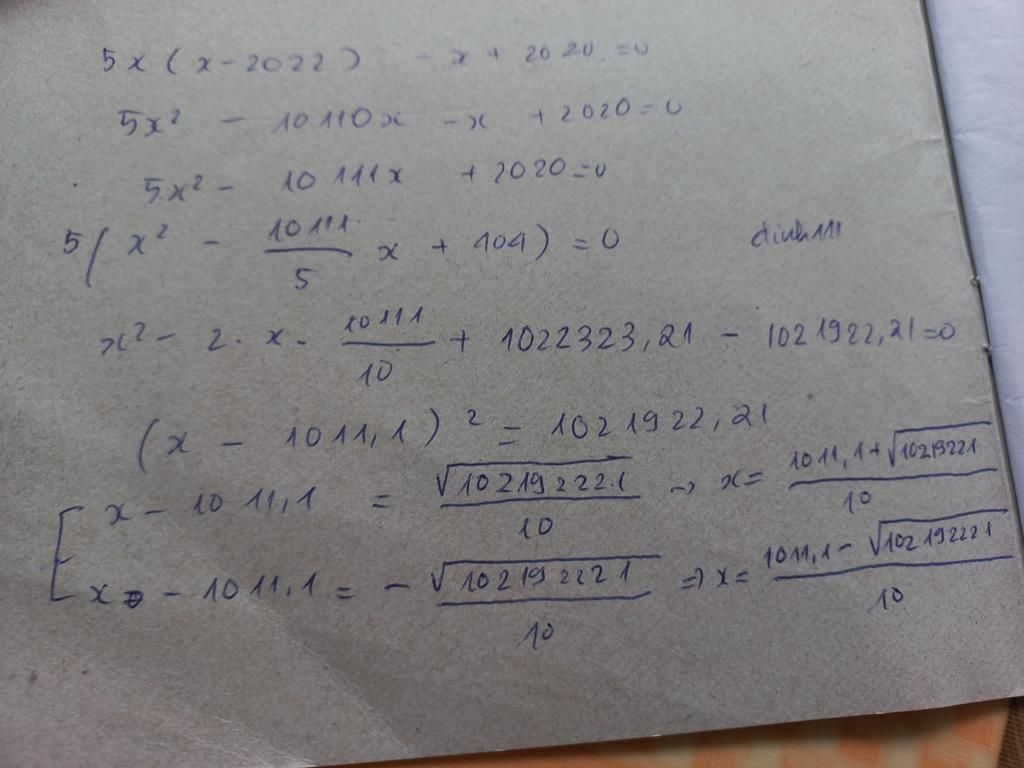 5x(x-2022) - x + 2020 = 0
5x² - 10110x - x + 2020 = 0
5x² - 10111x + 2020 = 0
5(x² - 10111/5 x + 404) = 0
x² - 2. x. 10111/10 + 1022323,21 - 1021922,21 = 0
(x - 1011,1)² = 1021922,21
x - 1011,1 = √102192221/10 → x = 1011,1+√10219221/10
x - 1011,1 = - √102192221/10 ⇒ x = 1011,1-√102192221/10